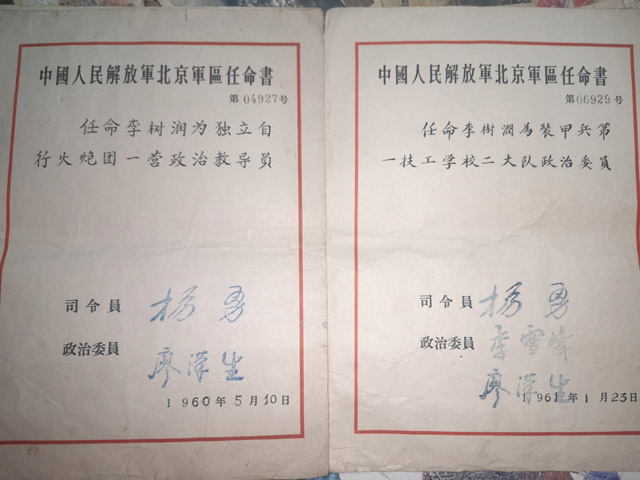 中國人民解放軍北京軍區任命書
第04927号
任命李树润为独立自
行火炮团一营政治教导员
司令員 杨勇
政治委員 廖漢生
1960年5月10日
中國人民解放軍北京軍區任命書
第06929号
任命李樹潤為装甲兵第
一技工学校二大队政治委員
司令員 杨勇
政治委員 李雪峰
廖漢生
1961年1月23日